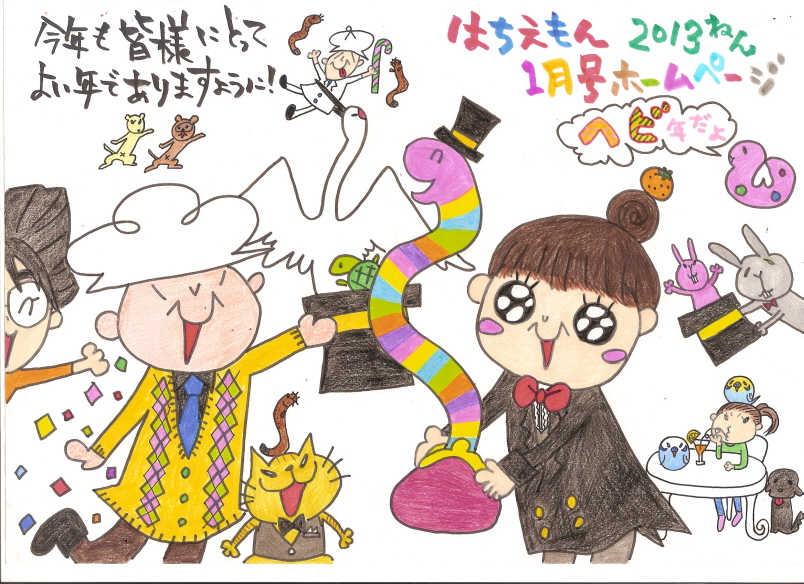 今年も皆様にとって
よい年でありますように!
はちえもん 2013ねん
1月号ホームページ
ヘビ年だよ